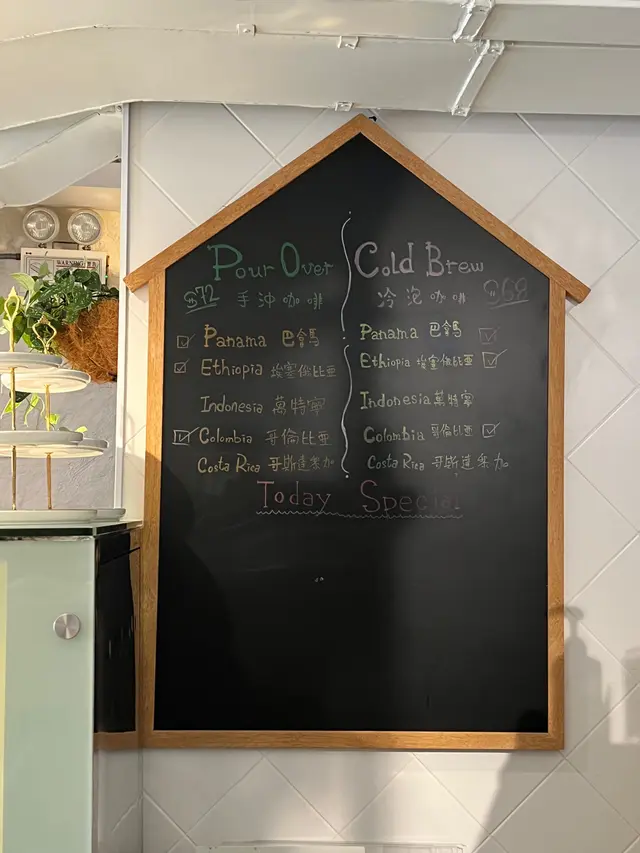 WARNING
Pour Over
$72 手沖咖啡
☑ Panama 巴拿馬
☑ Ethiopia 埃塞俄比亞
Indonesia 萬特寧
☑ Colombia 哥倫比亞
Costa Rica 哥斯達黎加
Cold Brew
冷泡咖啡 $68
Panama 巴拿馬 ☑
Ethiopia 埃塞俄比亞 ☑
Indonesia 萬特寧
Colombia 哥倫比亞 ☑
Costa Rica 哥斯達黎加
Today Special